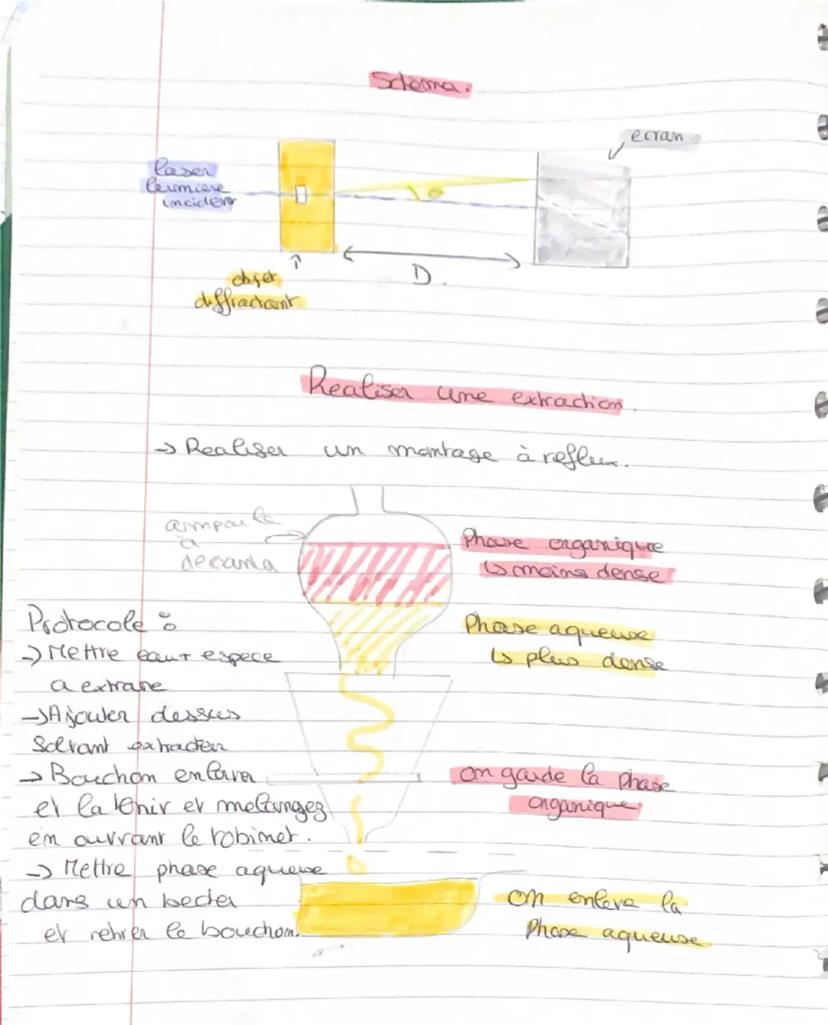 Schema.
ecran
laser
lumiere
incidente
θ
D.
objet
diffractant
Realiser une extraction.
→ Realiser un montage à reflux.
ampoule
a
decanta
Phase organique
↳ moins dense
Protocole :
→ Mettre eau + espece
a extraire
→ Ajouter dessus
Solvant extracteur
→ Bouchon enlever
et la tenir et melangez
en ouvrant le robinet.
→ Mettre phase aqueuse
dans un becher
et retirer le bouchon.
Phase aqueuse
↳ plus dense
on garde la phase
organique
on enleve la
Phase aqueuse